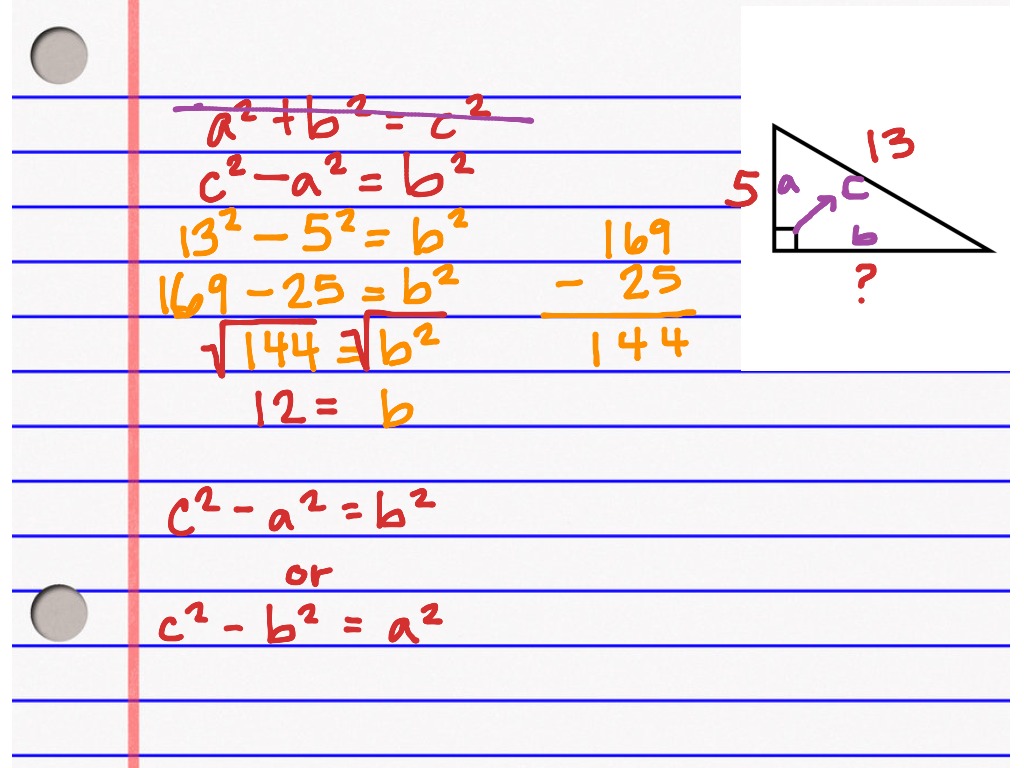 a² + b² = c²
c² − a² = b²
13² − 5² = b²
169 − 25 = b²
√144 = √b²
12 = b
169
− 25
144
13
5 a c
b
?
c² − a² = b²
or
c² − b² = a²